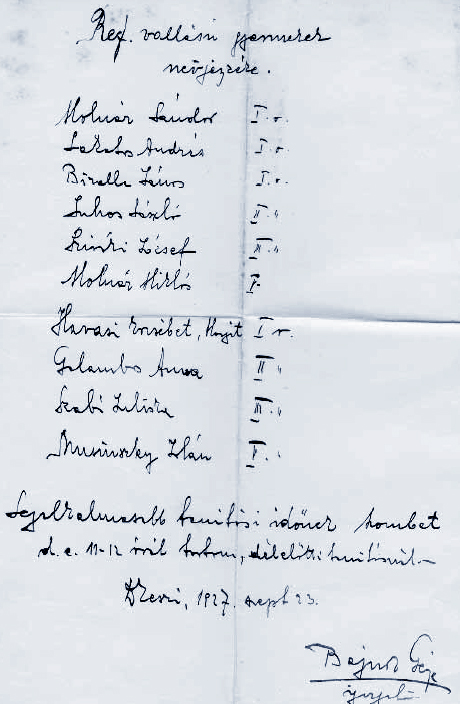 Ref. vallású gyermekek
névjegyzéke.
Molnár Sándor I. o.
Lakatos András I. o.
Bizalla János I. o.
Lukos László II. "
Szinóki József III. "
Molnár Miklós V.
Havasi Erzsébet, I o.
Galambos Anna II "
Szabó Juliska III. "
Musinszky Ilán V. "
Legalkalmasabb tanítási időnek szombat
d. e. 11-12 óráig tartom, délelőtti
1927. szept 23.
Bajusz Géza
igazgató